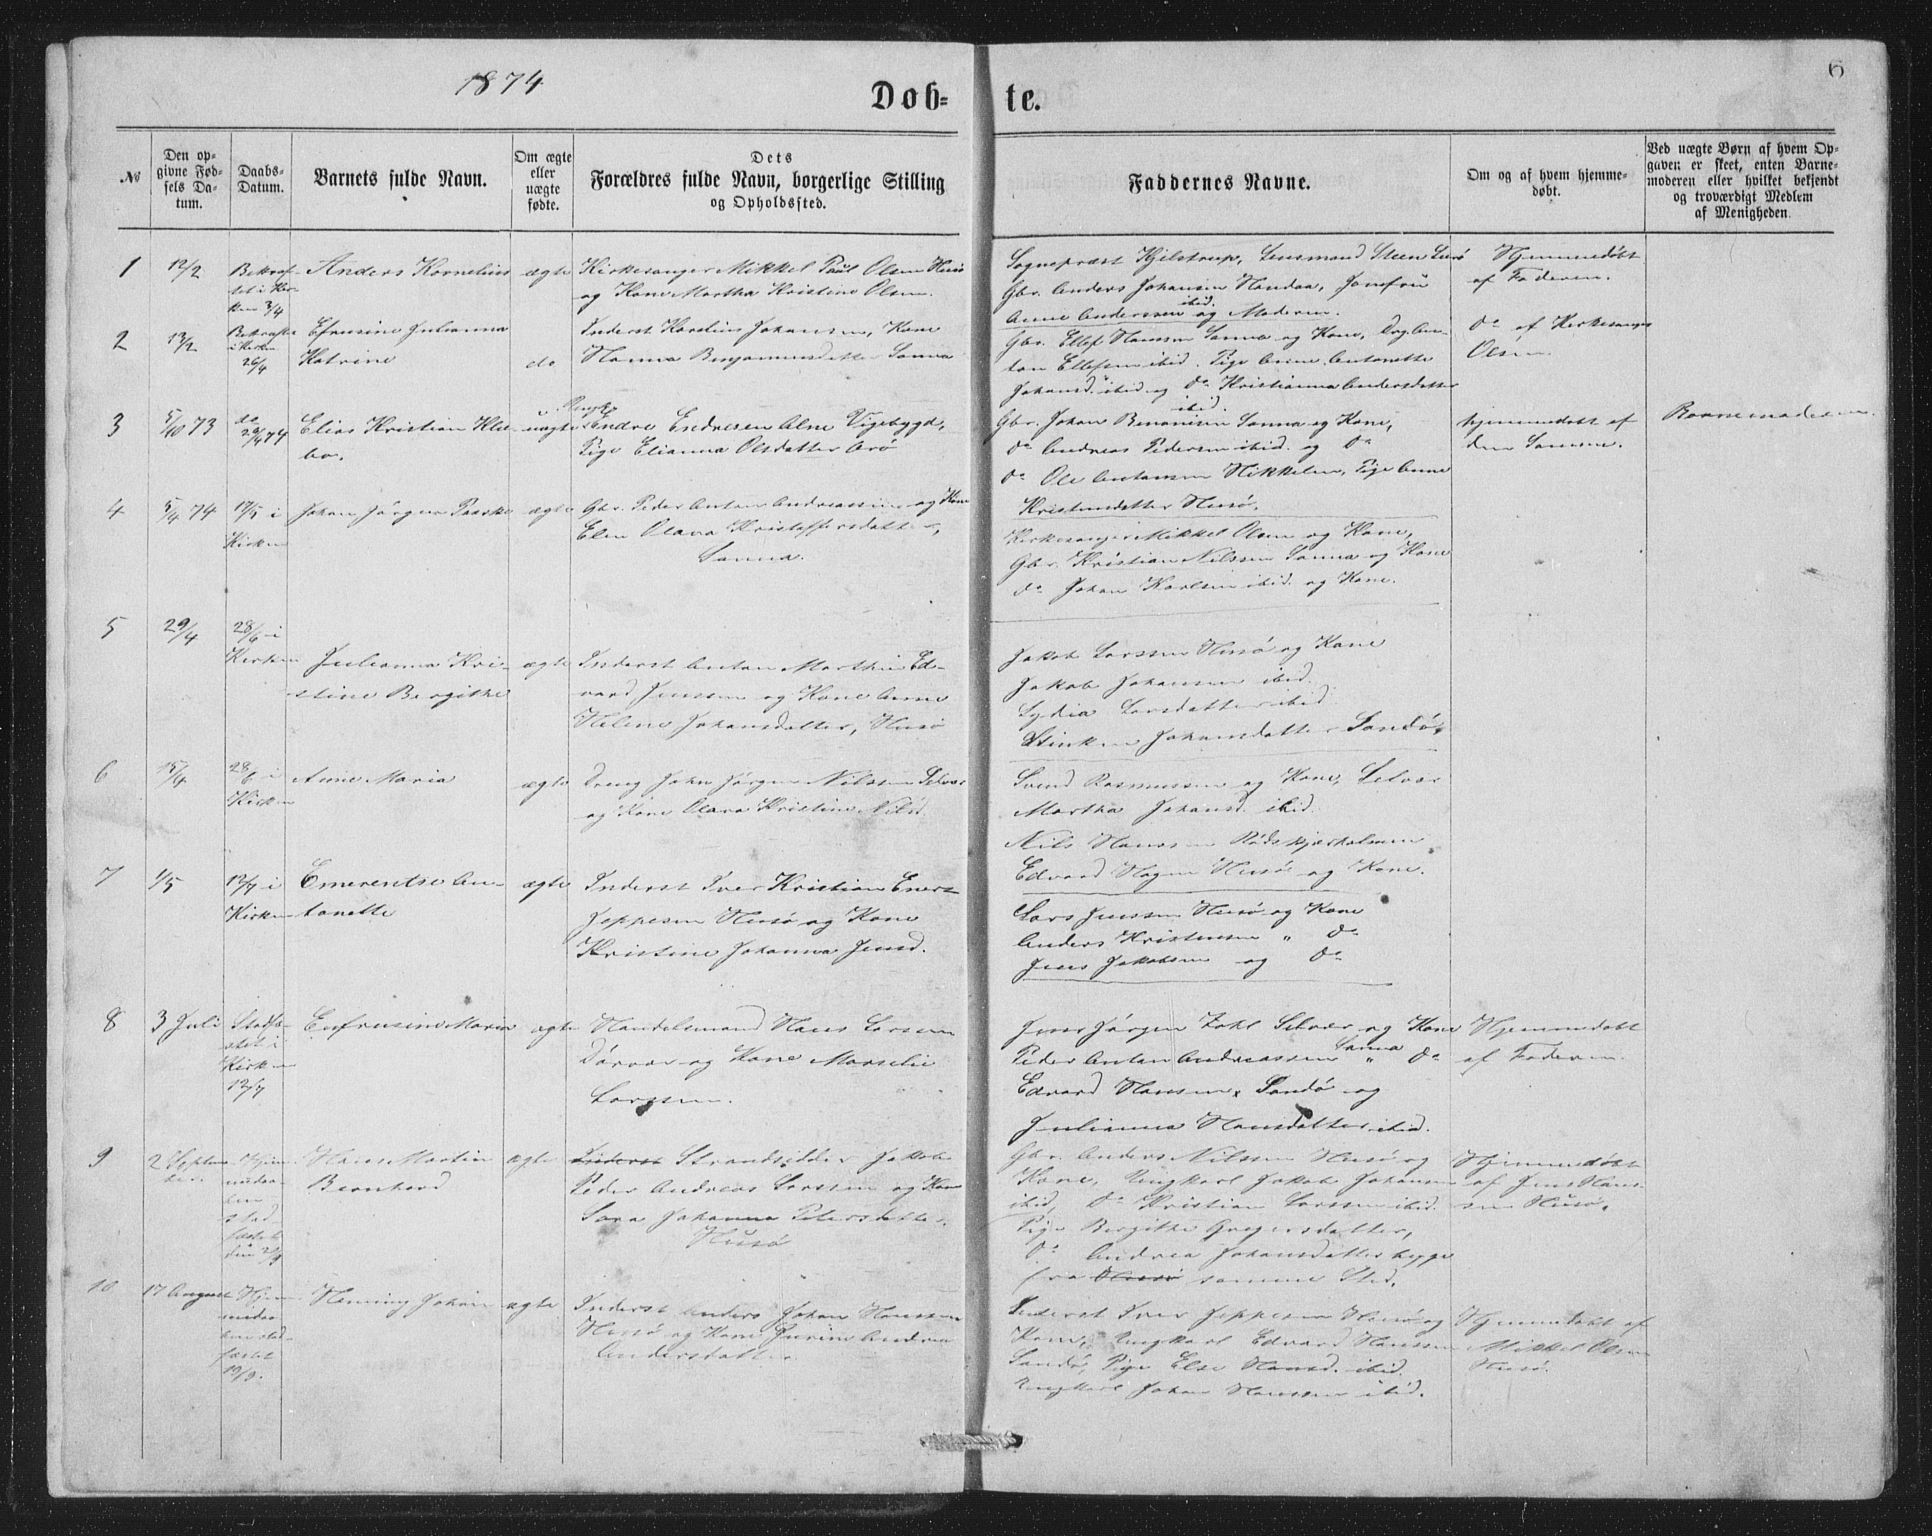 1874
6
Døb- te.
№
Den op-
givne Fød-
sels Da-
tum.
Daabs-
Datum.
Barnets fulde Navn.
Om ægte
eller
uægte
fødte.
Dets
Forældres fulde Navn, borgerlige Stilling
og Opholdssted.
Faddernes Navne.
Om og af hvem hjemme-
døbt.
Ved uægte Børn af hvem Op-
gaven er skeet, enten Barne-
moderen eller hvilket bekjendt
og troværdigt Medlem
af Menigheden.
1
12/2
Bekræf-
tet i Kir-
ken 3/4
Anders Kornelius
ægte
Kirkesanger Mikkel Paul Olsen Husø
og Kone Martha Kristine Olsen.
Sognepræst Hjelstrup, Lensmand Steen Lurø
Gbr. Anders Johansen Handaa, Jomfru
Anne Anderssen ibid. og Moderen.
Hjemmedøbt
af Faderen.
2
13/2
Bekræftet
i Kirken
26/4
Efrusine Julianna
Katrine
do
Inderst Karelius Johansen, Kone
Hanna Benjaminsdatter Sanna
Gbr. Ellef Hansen Sanna og Kone, Dreng An-
ton Ellefsen ibid. Pige Anne Antonette
Johansd. ibid. og do Kristianna Andersdatter
ibid.
do af Kirkesanger
Olsen.
3
5/10 73
do
29/4 74
Elias Kristian Kle-
bo.
uægte
Ungk.
Endre Endresen Alne Vigebygd,
Pige Elianna Olsdatter Arø
Gbr. Johan Benonisen Sanna og Kone,
do Andreas Pedersen ibid. og do
do Ole Antonsen Nikkelen, Pige Anne
Kristensdatter Husø.
hjemmedøbt af
den Samme.
Barnemoderen
4
5/4 74
17/5 i
Kirken
Johan Jørgen Paaske
ægte
Gbr. Peder Antan Andreassen og Kone
Elen Olava Kristoffersdatter,
Sanna.
Kirkesanger Mikkel Olsen og Kone,
Gbr. Kristian Nilssen Sanna og Kone
do Johan Karlsen ibid. og Kone.
5
29/4
28/6 i
Kirken
Julianna Kri-
stine Bergitte
ægte
Inderst Antan Marthin Ed-
vard Jenssen og Kone Anne
Helene Johansdatter, Husø
Jakob Larssen Husø og Kone
Jakob Johansen ibid.
Lydia Larsdatter ibid.
Stinken Johansdatter Sandø.
6
15/4
28/6 i
Kirken
Anne Maria
ægte
Dreng John Jørgen Nilssen Selvær
og Kone Olava Kristine Nilsd.
Svend Rasmussen og Kone, Selvær
Martha Johansd. ibid.
Nils Hanssen Rødskjærholmen
Edvard Hagen Husø og Kone.
7
1/5
12/7 i
Kirken
Emerentse An-
tonette
ægte
Inderst Iver Kristian Enert
Jeppesen Husø og Kone
Kristine Johanna Jensd.
Lars Jenssen Husø og Kone
Anders Kristensen " do
Jens Jakobsen og do
8
3 Juli
Stadfæ-
stet i
Kirken
12/7
Enfrusine Maria
ægte
Handelsmand Hans Larsen
Dørvær og Kone Marselie
Larssen.
Jens Jørgen Zahl Selvær og Kone
Peder Antan Andreassen Sanna " do
Edvard Hansen, Sandø og
Julianna Hansdatter ibid.
Hjemmedøbt
af Faderen.
9
2 Septem-
ber
Hjem-
medø-
ben
stad-
fæstet
den 2/9
Hans Martin
Bernhard
ægte
Inderst Strandsidder Jakob
Peder Andreas Larssen og Kone
Sara Johanna Petersdatter.
Husø
Gbr. Anders Nilssen Husø og
Kone, Ungkarl Jakob Johansen
ibid, do Kristian Larssen ibid.
Pige Bergitte Gregersdatter,
do Andrea Johansdatter begge
fra Husø samme Sted.
Hjemmedøbt
af Jens Hans-
sen Husø.
10
17 August
Hjem-
medaa-
ben stad-
fæstet
19/9.
Henning Johan
ægte
Inderst Anders Johan Hanssen
Husø og Kone Jurine Andrea
Andersdatter
Inderst Iver Jeppesen Husø og
Kone, Ungkarl Edvard Hanssen
Sandø, Pige Else Hansd. ibid.
Ungkarl Johan Hanssen ibid.
Hjemmedøbt af
Mikkel Olsen
Husø.